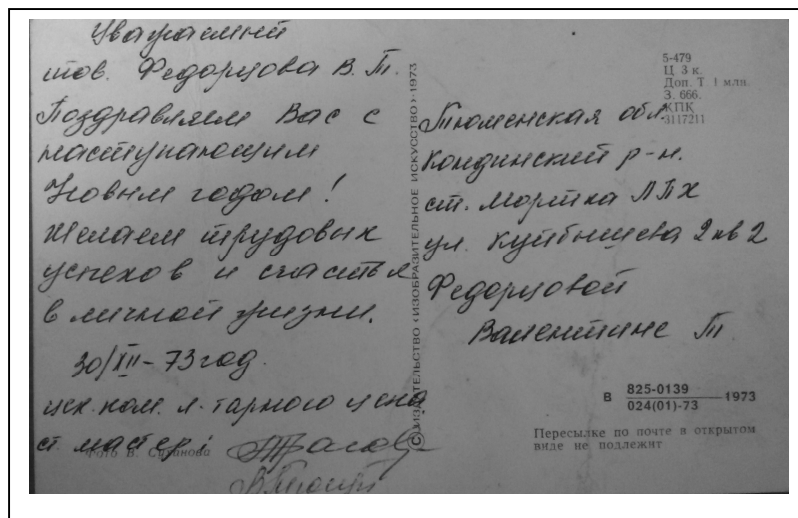 Уважаемый
тов. Федорцова В. Т.
Поздравляем Вас с
наступающим
Новым годом!
Желаем трудовых
успехов и счастья
в личной жизни.
30/XII-73 год.
цех.ком. л. тарного цеха
ст. мастер
Фото В. Суханова
© ИЗДАТЕЛЬСТВО «ИЗОБРАЗИТЕЛЬНОЕ ИСКУССТВО» 1973
5-479
Ц 3 к.
Доп. Т 1 млн.
З. 666.
ЖПК
3117211
Тюменская обл.
Кондинский р-н.
ст. Мортка ЛПХ
ул. Куйбышева 2 кв 2
Федорцовой
Валентине Т
В 825-0139
024(01)-73 1973
Пересылке по почте в открытом
виде не подлежит